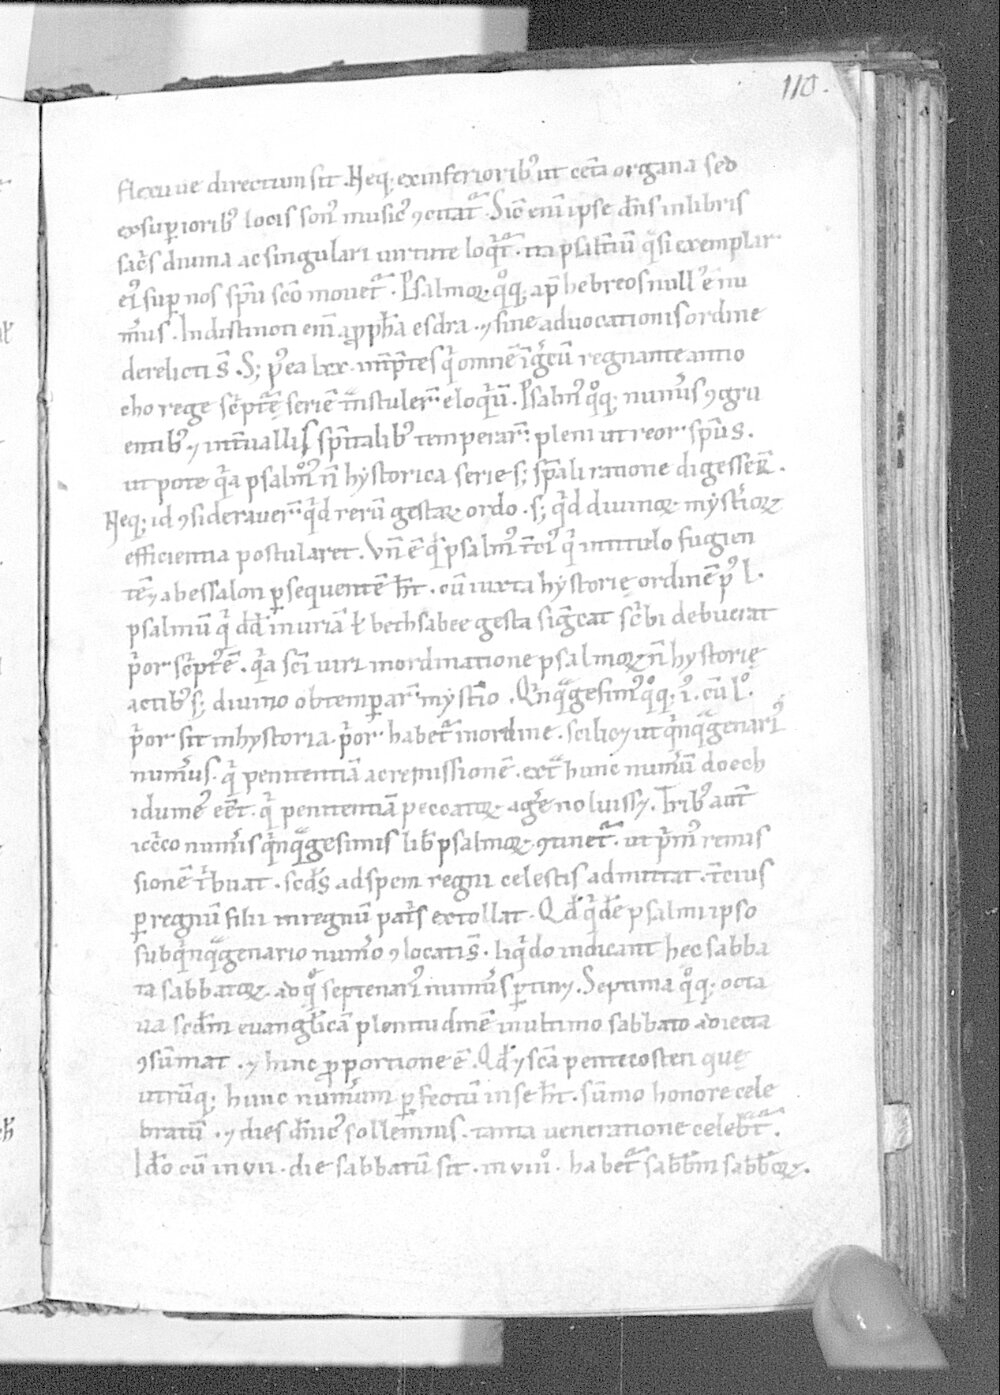 110.
flexuue directum sit. Neq; ex inferiorib' ut cet̄a organa sed
ex sup̱iorib' locis son' music' ꝯcitat᷑. Sic̄ enī ipse dn̄s in libris
sac̄s diuina ac singulari uirtute loq̇t᷑. ita psalt̄iū q̄si exemplar
ei' sup nos sp̄u sc̄o mouet᷑. Psalmoꝝ q̊q; ap̄ hebreos null' ē nu
m̄us. Indistincti eni a ꝓph̄a esdra. ⁊ sine aduocationis ordine
derelicti s̄. S; p' ea lxx. int̄p̄tes qi omnē i greciā regnante antio
cho rege sc̄ptę seriē tnstuler᷑ eloq̇ū. Psalm' q̊q; num̄is ꝯgru
entib' ⁊ int̄uallis sp̄italib' temperar᷑ pleni ut reor sp̄u s.
ut pote qi̇a psalm̊' n̄ hystorica serie s; sp̄ali ratione digesser᷑.
Neq; id ꝯsiderauer᷑ qi̇d rerū gestaꝝ ordo. s; qi̇d diuinoꝝ myst̄ioꝝ
efficientia postularet. Vn̄ ē qi̇ psalm' t̄ci' qi̇ in titulo fugien
tē ⁊ abessalon ꝑsequentē h̄t. cū iuxta hystorię ordinē p' l.
psalmū qi̇ dd̄ in uriā ł bethsabee gesta siḡcat sc̄bi debuerat
p̄or sc̄pt' ē. qi̇a sc̄i uiri in ordinatione psalmoꝝ n̄ hystorię
actib' s; diuino obtemꝑar᷑ myst̄io. Qi̇nq̄gesim' q̊q; .i. cū l̊.
p̄or sit in hystoria. p̄or habet᷑ in ordine. scilic; ut qi̇nq̄genari'
num̄us. qi̇ penitentiā ac remissionē. ext̄ hunc num̄ū doech
idume' eēt. qi̇ penitentiā peccatoꝝ aḡe noluiss;. Trib' aut̄
icc̄co num̄is qi̇nq̄gesimis lib̄ psalmoꝝ ꝯtinet᷑. ut p̄m' remis
sionē t̄buat. scd̄s ad spem regni celestis admittat. t̄cius
ꝑ regnū filii in regnū pat̄s extollat. Qd̄ qi̇dē psalmi ipso
sub qi̇nq̄genario num̄o ꝯlocatis. liqi̇do indicant hec sabba
ta sabbatoꝝ ad q̊ septenari' num̄us ꝑtin;. Septima q̊q; octa
ua scdm̄ euangl̄icā plenitudinē in ultimo sabbato adiecta
ꝯsūmat. ⁊ hinc ꝓportione ē. Qd̄ ⁊ sc̄a pentecosten quę
utrūq; hunc num̄um ꝑfectū in se h̄t. sūmo honore cele
bratū. ⁊ dies dn̄ic' sollennis. tanta ueneratione celebr̄t᷑.
Id̄o cū in vii. die sabbatū sit. in viii̊. habet᷑ sabb̄m sabb̄oꝝ.